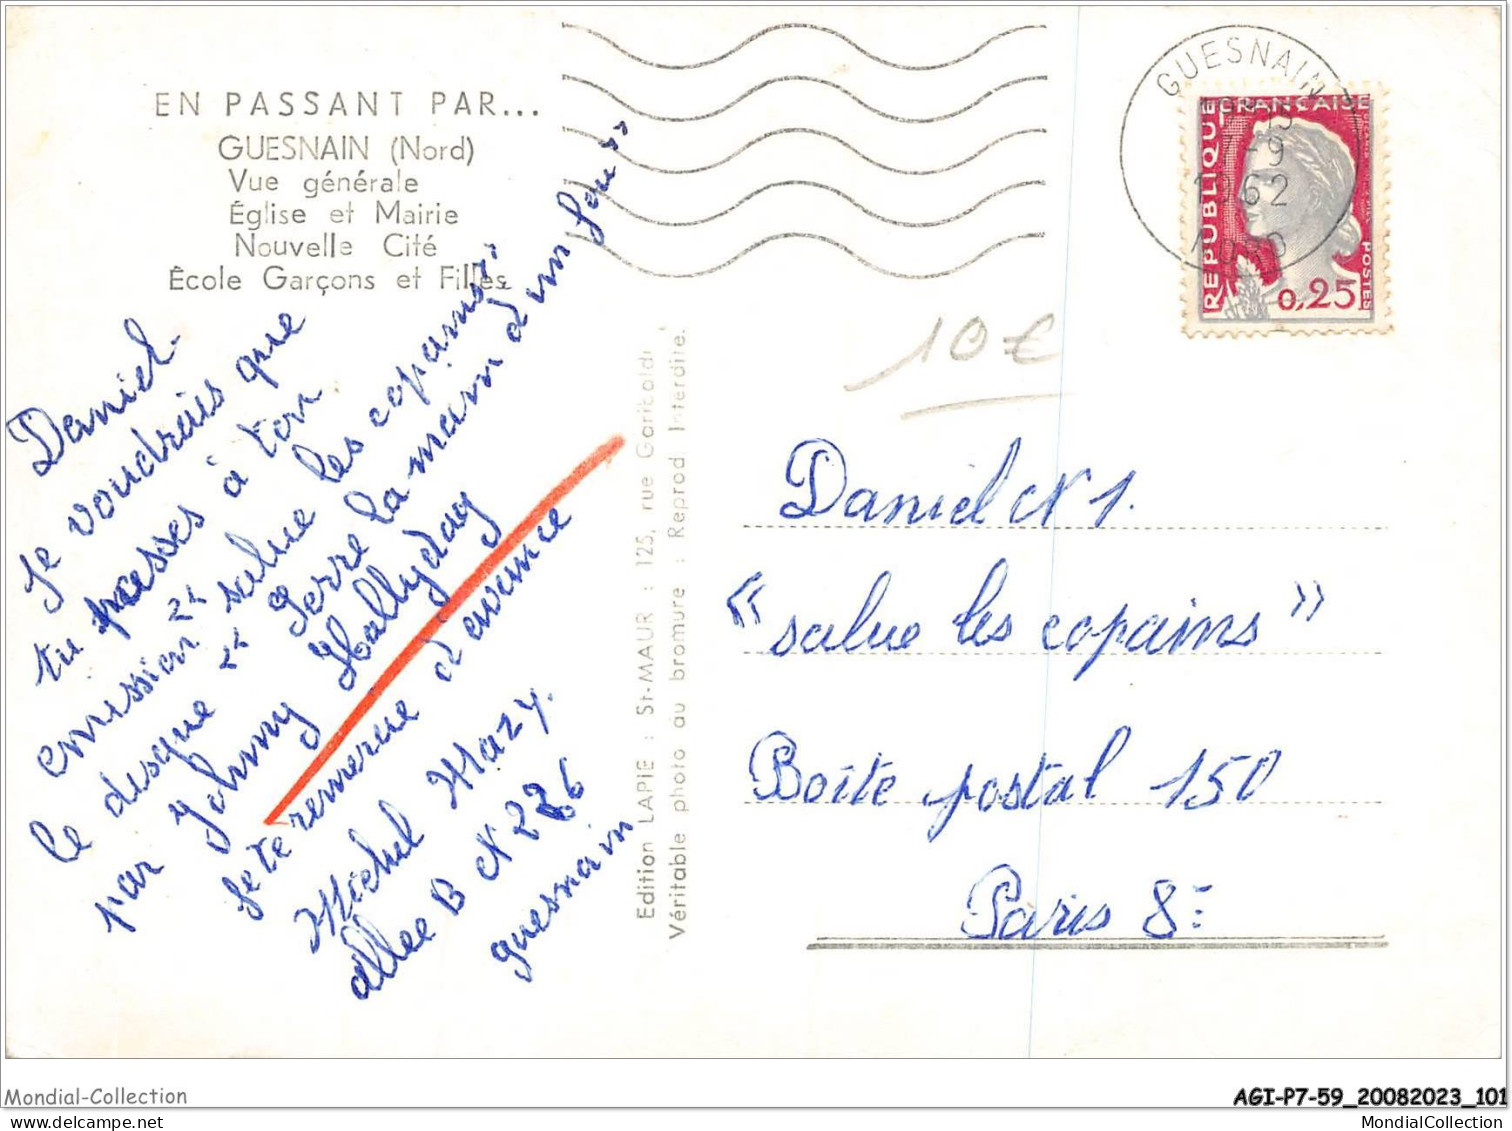 EN PASSANT PAR...
GUESNAIN (Nord)
Vue générale
Église et Mairie
Nouvelle Cité
École Garçons et Filles
Daniel.
Je voudrais que
tu passes à ton
emission "salue les copains".
le desque "Serre la main d'un fou"
par Johnny Hallyday
Je te remercie d'avance
Michel Mazy.
allee B N 226
guesnain
Edition LAPIE : St-MAUR : 125, rue Garibaldi
Véritable photo au bromure : Reprod Interdite.
GUESNAIN
-9
1962
NORD
RÉPUBLIQUE FRANÇAISE
POSTES
0,25
10€
Daniel N 1.
"salue les copains"
Boîte postal 150
Paris 8e
Mondial-Collection
AGI-P7-59_20082023_101
MondialCollection